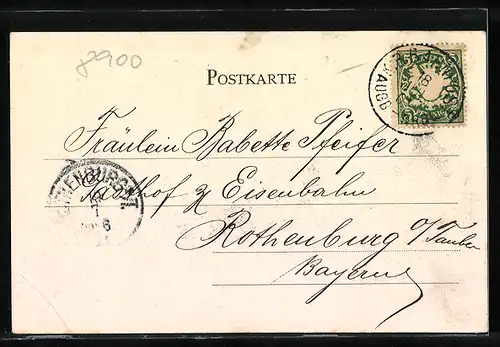 2900
POSTKARTE
Fräulein Babette Pfeifer
Gasthof z Eisenbahn
Rothenburg o/Tauber
Bayern